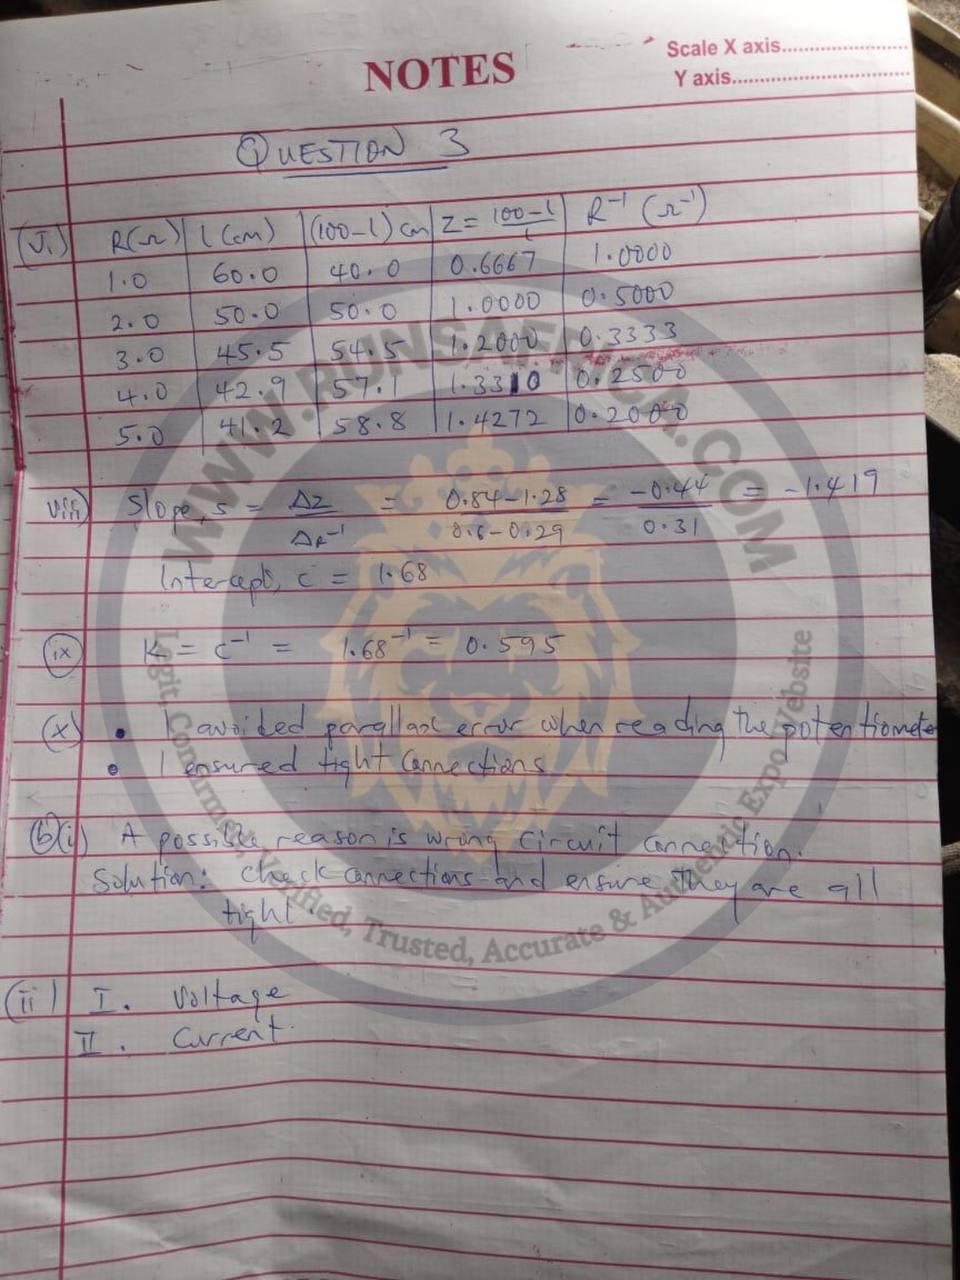 Scale X axis
Y axis
NOTES
QUESTION 3
(vi) R(Ω) l (cm) (100-l) cm Z = 100-l/l R⁻¹ (Ω⁻¹)
1.0 60.0 40.0 0.6667 1.0000
2.0 50.0 50.0 1.0000 0.5000
3.0 45.5 54.5 1.2000 0.3333
4.0 42.9 57.1 1.3310 0.2500
5.0 41.2 58.8 1.4272 0.2000
viii) Slope, s = ΔZ/ΔR⁻¹ = 0.84-1.28/0.6-0.29 = -0.44/0.31 = -1.419
Intercept, c = 1.68
(ix) K = c⁻¹ = 1.68⁻¹ = 0.595
(x) • I avoided parallax error when reading the potentiometer
• I ensured tight connections
(b)(i) A possible reason is wrong circuit connection.
Solution: check connections and ensure they are all
tight.
(ii) I. Voltage
II. Current.
WWW.RUNSAFRICA.COM
Legit, Confirmed, Verified, Trusted, Accurate & Authentic Expo Website